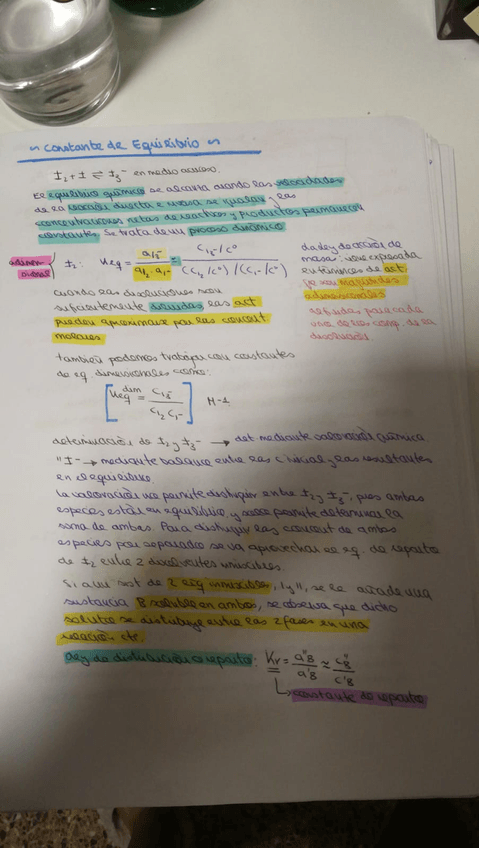 ~ Constante de Equilibrio ~
I₂ + I ⇌ I₃⁻ en medio acuoso.
El equilibrio químico se alcanza cuando las velocidades
de la reacción directa e inversa se igualan y las
concentraciones netas de reactivos y productos permanecen
constantes. Se trata de un proceso dinámico
adimensional
I₂: Keq = a I₃⁻ / a I₂ · a I⁻ = C I₃⁻/C° / (C I₂/C°)/(C I⁻/C°)
la ley de acción de
masas: viene expresada
en términos de act.
que son magnitudes
adimensionales
definidas para cada
uno de los comp. de la
disolución.
cuando las disoluciones son
suficientemente diluidas las act
pueden aproximarse por las concent.
molares
también podemos trabajar con constantes
de eq. dimensionales como:
[Keq dim = C I₃⁻ / C I₂ C I⁻] M-1
determinación de I₂ y I₃⁻ → det. mediante valoración química.
" I⁻ → mediante balance entre las C inicial y las resultantes
en el equilibrio.
La valoración no permite distinguir entre I₂ y I₃⁻, pues ambas
especies están en equilibrio, y solo permite determinar la
suma de ambas. Para distinguir las concent de ambas
especies por separado se va aprovechar el eq. de reparto
de I₂ entre 2 disolventes inmiscibles.
Si a un sist de 2 líq inmiscibles, ' y '', se le añade una
sustancia B soluble en ambos, se observa que dicho
soluto se distribuye entre las 2 fases en una
relación cte.
Ley de distribución o reparto: Kr = a''B / a'B ≈ c''B / c'B
↳ constante de reparto